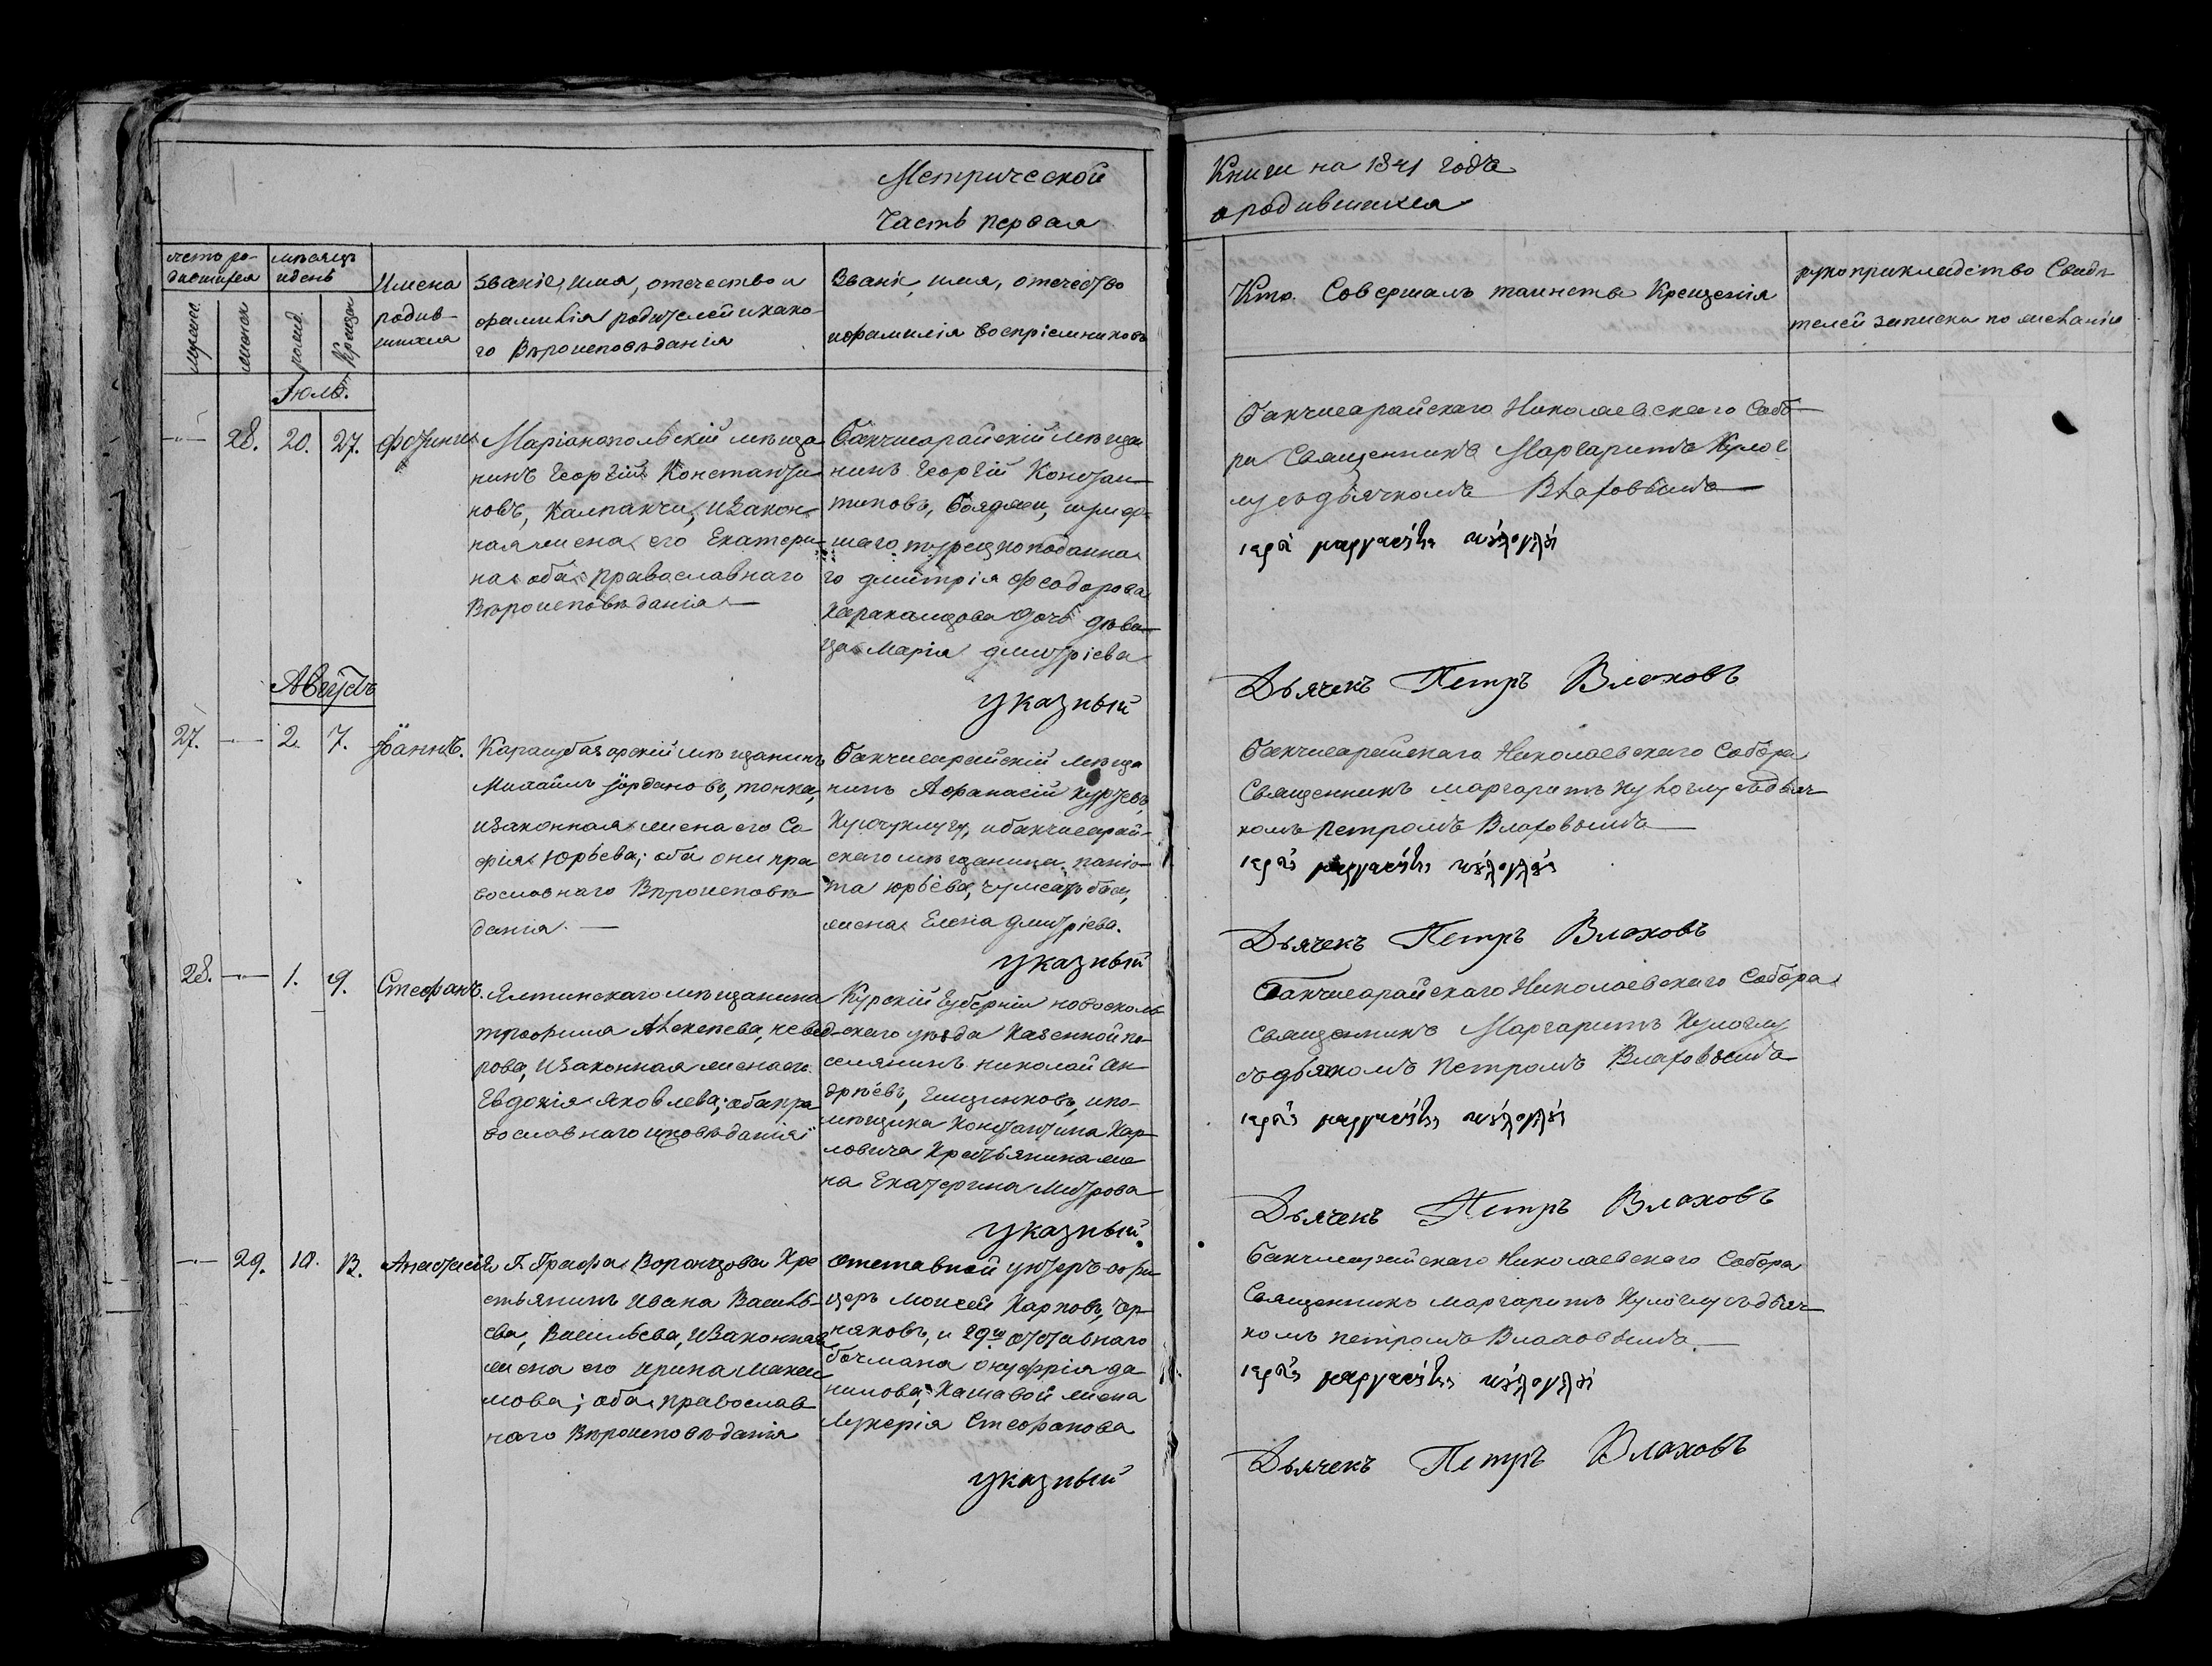 Метрической
Часть первая
Книги на 1841 годъ
о родившихся
мѣсяцъ
и день
Имена
родив-
шихся
Званіе, имя, отечество и
фамилія родителей и како-
го Вѣроисповѣданія
Званіе, имя, отечество
и фамилія воспріемниковъ
Кто Совершалъ таинство Крещенія
рукоприкладство Свидѣ-
телей записки по желанію
Іюль.
28. 20. 27.
Маріанопольскій мѣща-
нинъ Георгій Константи-
новъ, Калпакчи, и Закон-
ная жена его Екатери-
на оба православнаго
Вѣроисповѣданія
Бахчисарайскій мѣща
нинъ Георгій Констан-
тиновъ,
турецкоподанна
го Дмитрія Феодорова
дочь дѣви-
ца Марія Дмитріева
указный
Бахчисарайскаго Николаевскаго Собо-
ра Священникъ Маргаритъ Кулог
лу съ дьячкомъ Влаховымъ
Дьячекъ Петръ Влаховъ
Августъ
27. 2. 7. Іоаннъ.
Карасубазарскій мѣщанинъ
Михаилъ Іордановъ, топка,
и законная жена его Со
фія Юрьева; оба они пра
вославнаго Вѣроисповѣ
данія.
Бахчисарайскій мѣща
нинъ Афанасій
и бахчисарай-
скаго мѣщанина паніо-
та Юрьева,
жена Елена Дмитріева.
указный
Бахчисарайскаго Николаевскаго Собора
Священникъ Маргаритъ Кулоглу съ дьяч-
комъ Петромъ Влаховымъ
Дьячекъ Петръ Влаховъ
28. 1. 9. Стефанъ.
Ялтинскаго мѣщанина
трофима Алексеева,
и Законная жена его
Евдокія Яковлева; оба пра
вославнаго исповѣданія
Курскій Губерніи новооскол-
скаго уѣзда Казенной по-
селянинъ Николай Ан-
дрѣевъ, и по-
мѣщика Константина Кар-
ловича Крестьянина же
на Екатерина
указный.
Бахчисарайскаго Николаевскаго Собора
Священникъ Маргаритъ Кулоглу
съ дьячкомъ Петромъ Влаховымъ
Дьячекъ Петръ Влаховъ
29. 10. Анастасія
Г. Графа Воронцова Кре
стьянинъ Ивана Василь-
ева, Васильева, и Законная
жена его Ирина Макси
мова; оба православ
наго Вѣроисповѣданія
Отставной унтеръ-офи
церъ Моисей Карповъ,
и отставнаго
боцмана Онуфрія Да
нилова, жена
Лукерія Стефанова
указный
Бахчисарайскаго Николаевскаго Собора
Священникъ Маргаритъ Кулоглу съ дьяч-
комъ Петромъ Влаховымъ.
Дьячекъ Петръ Влаховъ